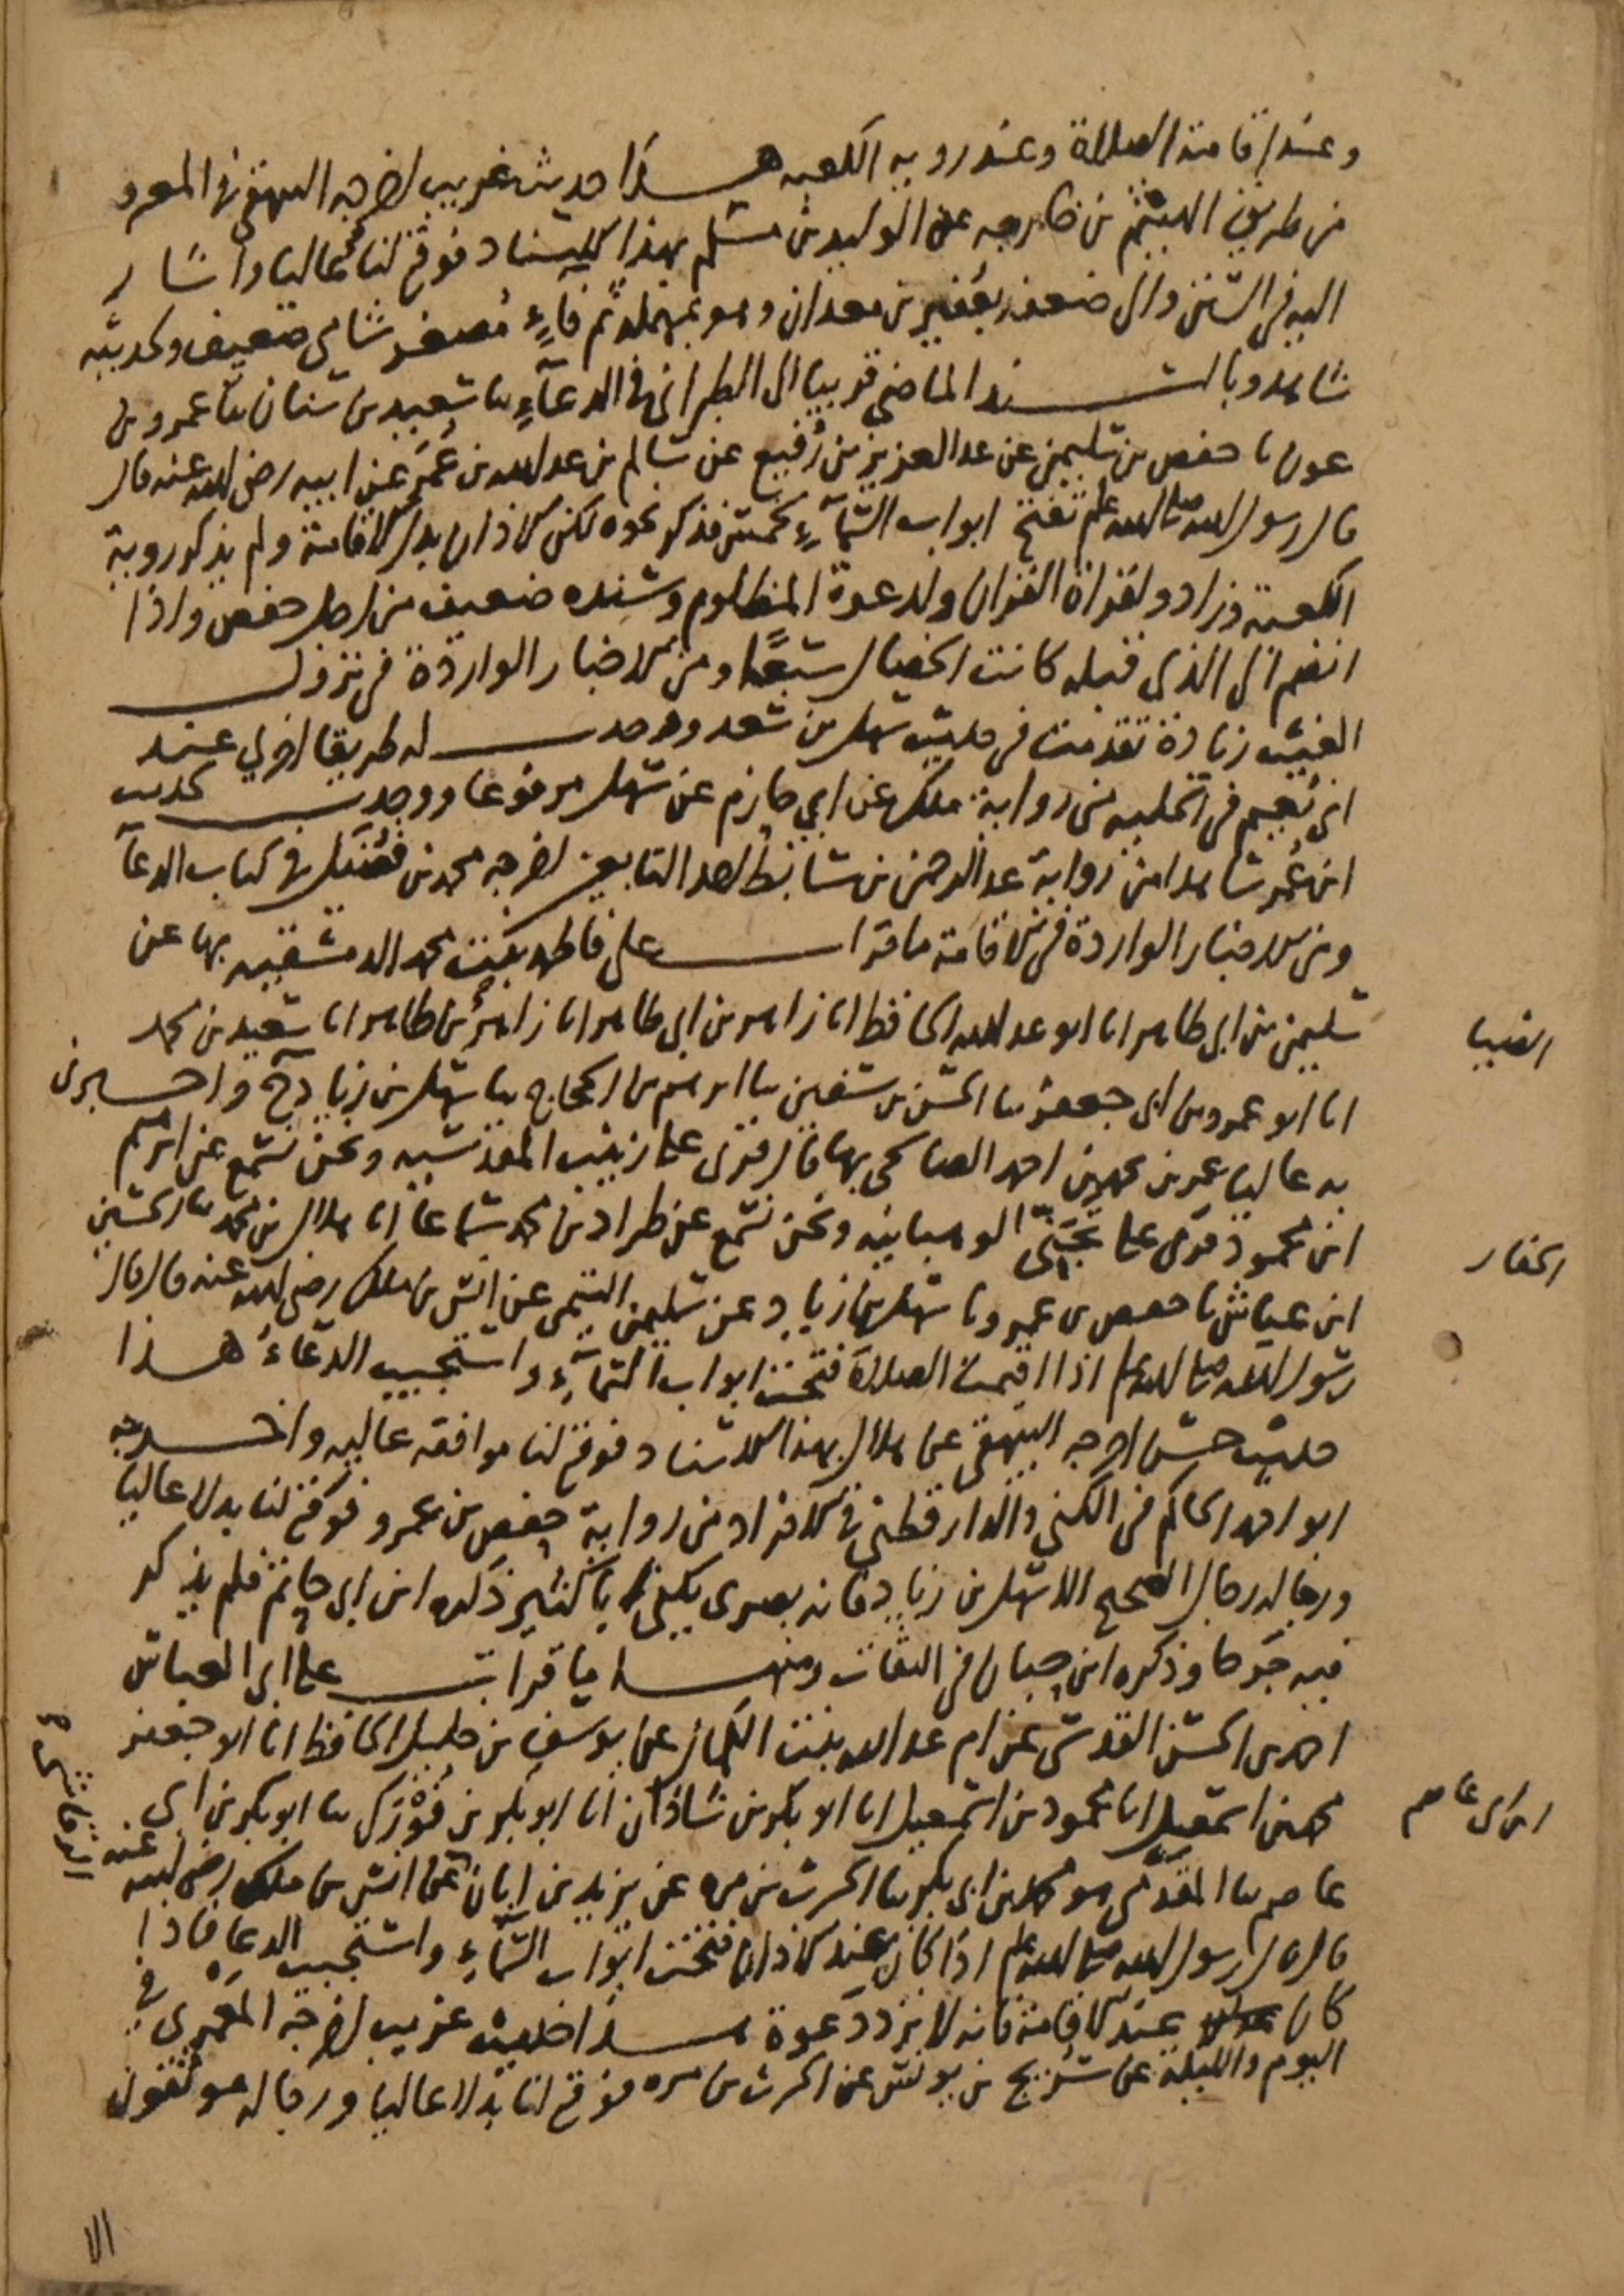 وعند اقامة الصلاة وعند روية الكعبه هذا حديث غريب اخرجه البيهقي في المعرفه
من طريق الهيثم بن خارجه عن الوليد بن مسلم بهذا الاسناد فوقع لنا عاليا واشار
اليه في السنن والى ضعف عفير بن معدان وهو بمهملة ثم فاء مصغر شامي ضعيف ولحديثه
شاهد وبالسند الماضي قريبا الى الطبراني في الدعاء سا سعيد بن سنان سا عمرو بن
عون نا حفص بن سليمن عن عبد العزيز بن رفيع عن سالم بن عبد الله بن عمر عن ابيه رضي الله عنه قال
قال رسول الله صلى الله علم تفتح ابواب السماء لخمس فذكر نحوه لكن الاذان بدل الاقامة ولم يذكر روية
الكعبة وزاد ولقراة القران ولدعوة المظلوم وسنده ضعيف من اجل حفص واذا
انضم الى الذي قبله كانت الخصال سبعا ومن الاخبار الواردة في نزول
الغيث زيادة تقدمت في حديث سهل بن سعد ووجدت له طريقا اخرى عند
ابي نعيم في الحلية من رواية ملك عن ابي حازم عن سهل مرفوعا ووجدت لحديث
ابن عمر شاهدا من رواية عبد الرحمن بن سابط احد التابعين اخرجه محمد بن فضيل في كتاب الدعا
ومن الاخبار الواردة في الاقامة ما قرات على فاطمة بنت محمد الدمشقيه بها عن
سليمن بن ابي طاهر انا ابو عبد الله الحافظ انا زاهر بن ابي طاهر انا زاهر بن طاهر انا سعيد بن محمد
الضيا
انا ابو عمرو بن ابي جعفر سا الحسن بن سفين سا ابرهيم بن الحجاج سا سهل بن زياد ح واخبرني
به عاليا عمر بن محمد بن احمد الصالحي بها قال قري على زينب المقدسيه ونحن نسمع عن ابرهيم
ابن محمود قري على تجني الوهبانيه ونحن نسمع عن طراد بن محمد سماعا انا هلال بن محمد سا الحسين
الحفار
ابن عياش نا حفص بن عمرو نا سهل بن زياد عن سليمن التيمي عن انس بن ملك رضي الله عنه قال قال
رسول الله صلى الله علم اذا اقيمت الصلاة فتحت ابواب السماء واستجيب الدعاء هذا
حديث حسن اخرجه البيهقي عن هلال بهذا الاسناد فوقع لنا موافقة عاليه واخرجه
ابو احمد الحاكم في الكنى والدارقطني في الافراد من رواية حفص بن عمرو فوقع لنا بدلا عاليا
ورجاله رجال الصحيح الا سهل بن زياد فانه بصري يكنى ذكره ابن ابي حاتم فلم يذكر
فيه جرحا وذكره ابن حبان في الثقات ومنها ما قرات على ابي العباس
احمد بن الحسن القدسي عن ام عبد الله بنت الكمال عن يوسف بن خليل الحافظ انا ابو جعفر
محمد بن اسمعيل انا محمود بن اسمعيل انا ابو بكر بن شاذان انا ابو بكر بن فورك سا ابو بكر بن ابي
ابن ابي عاصم
عاصم سا المقدمي هو محمد بن ابي بكر سا الحرث بن مره عن يزيد بن ابان عن انس بن ملك رضي الله عنه
الرقاشي
قال قال رسول الله صلى الله علم اذا كان عند الاذان فتحت ابواب السماء واستجيب الدعاء فاذا
كان عند الاقامة فانه لا يزد دعوة هذا حديث غريب اخرجه المعمري في
اليوم والليلة عن سريج بن يونس عن الحرث بن مره فوقع لنا بدلا عاليا ورجاله موثقون
الا